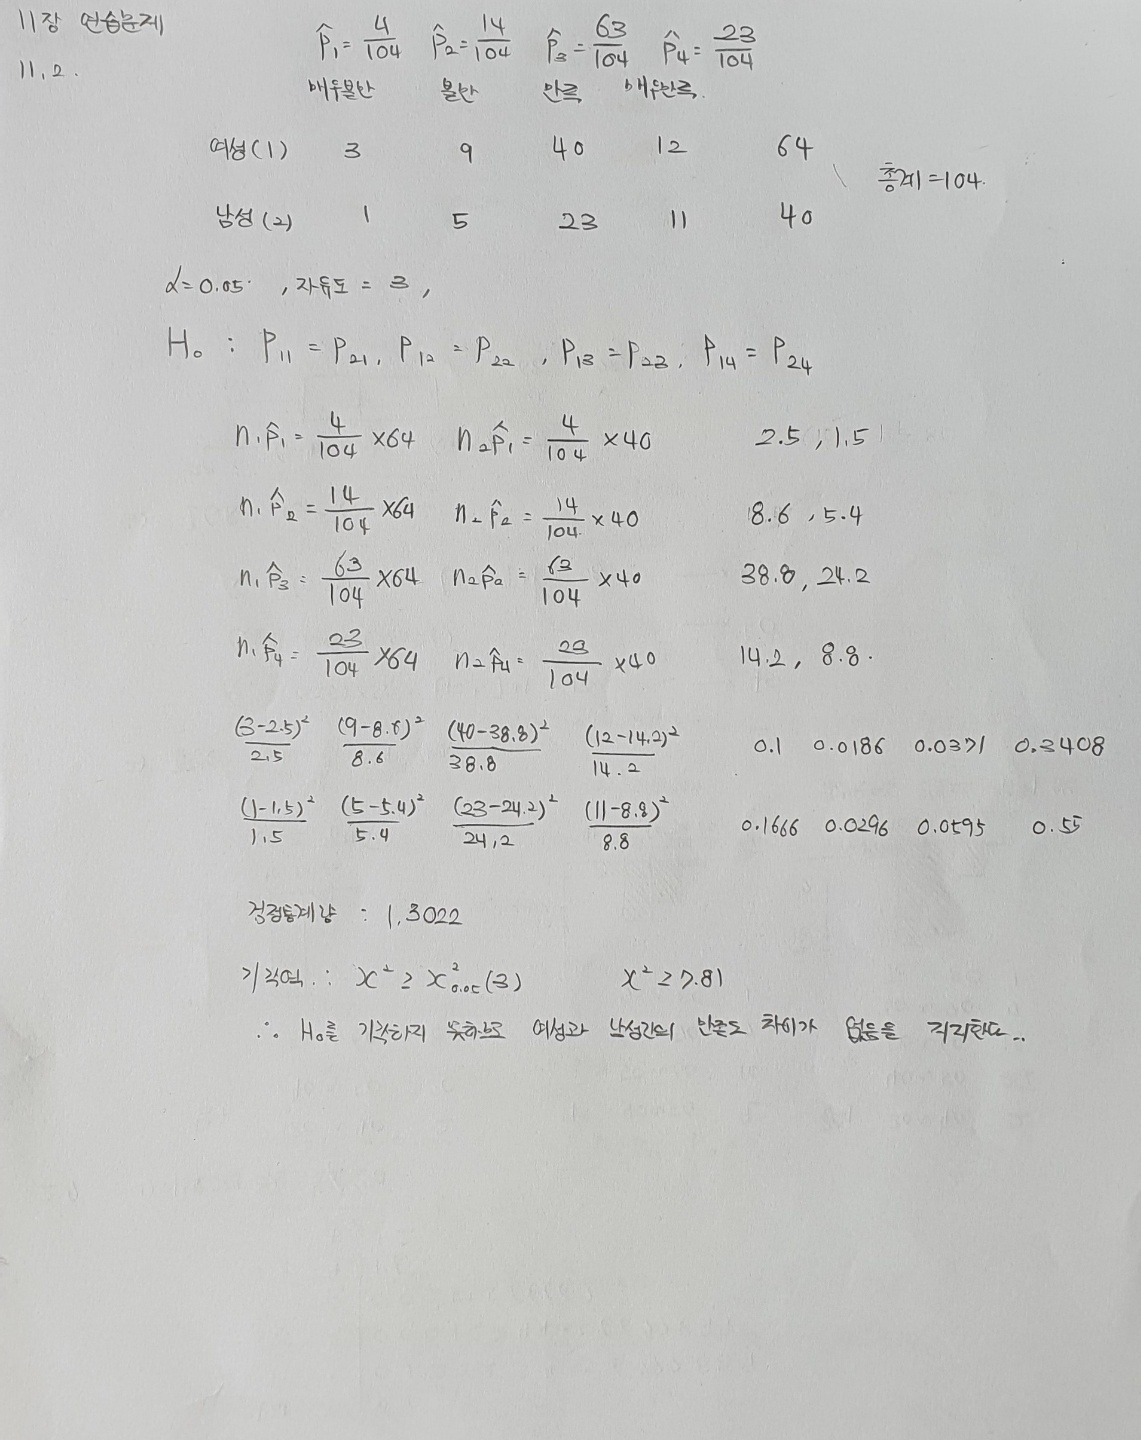 11장 연습문제
11.2.
p̂₁ = 4/104 p̂₂ = 14/104 p̂₃ = 63/104 p̂₄ = 23/104
매우불만 불만 만족 매우만족.
여성(1) 3 9 40 12 64
총계 = 104.
남성(2) 1 5 23 11 40
α = 0.05 , 자유도 = 3 ,
H₀ : P₁₁ = P₂₁, P₁₂ = P₂₂ , P₁₃ = P₂₃, P₁₄ = P₂₄
n₁p̂₁ = 4/104 ×64 n₂p̂₁ = 4/104 ×40 2.5 , 1.5
n₁p̂₂ = 14/104 ×64 n₂p̂₂ = 14/104 ×40 8.6 , 5.4
n₁p̂₃ = 63/104 ×64 n₂p̂₂ = 63/104 ×40 38.8 , 24.2
n₁p̂₄ = 23/104 ×64 n₂p̂₄ = 23/104 ×40 14.2 , 8.8.
(3-2.5)²/2.5 (9-8.6)²/8.6 (40-38.8)²/38.8 (12-14.2)²/14.2 0.1 0.0186 0.0371 0.3408
(1-1.5)²/1.5 (5-5.4)²/5.4 (23-24.2)²/24.2 (11-8.8)²/8.8 0.1666 0.0296 0.0595 0.55
검정통계량 : 1.3022
기각역 : χ² ≥ χ²₀.₀₅(3) χ² ≥ 7.81
∴ H₀를 기각하지 못하므로 여성과 남성간의 만족도 차이가 없음을 지지한다..